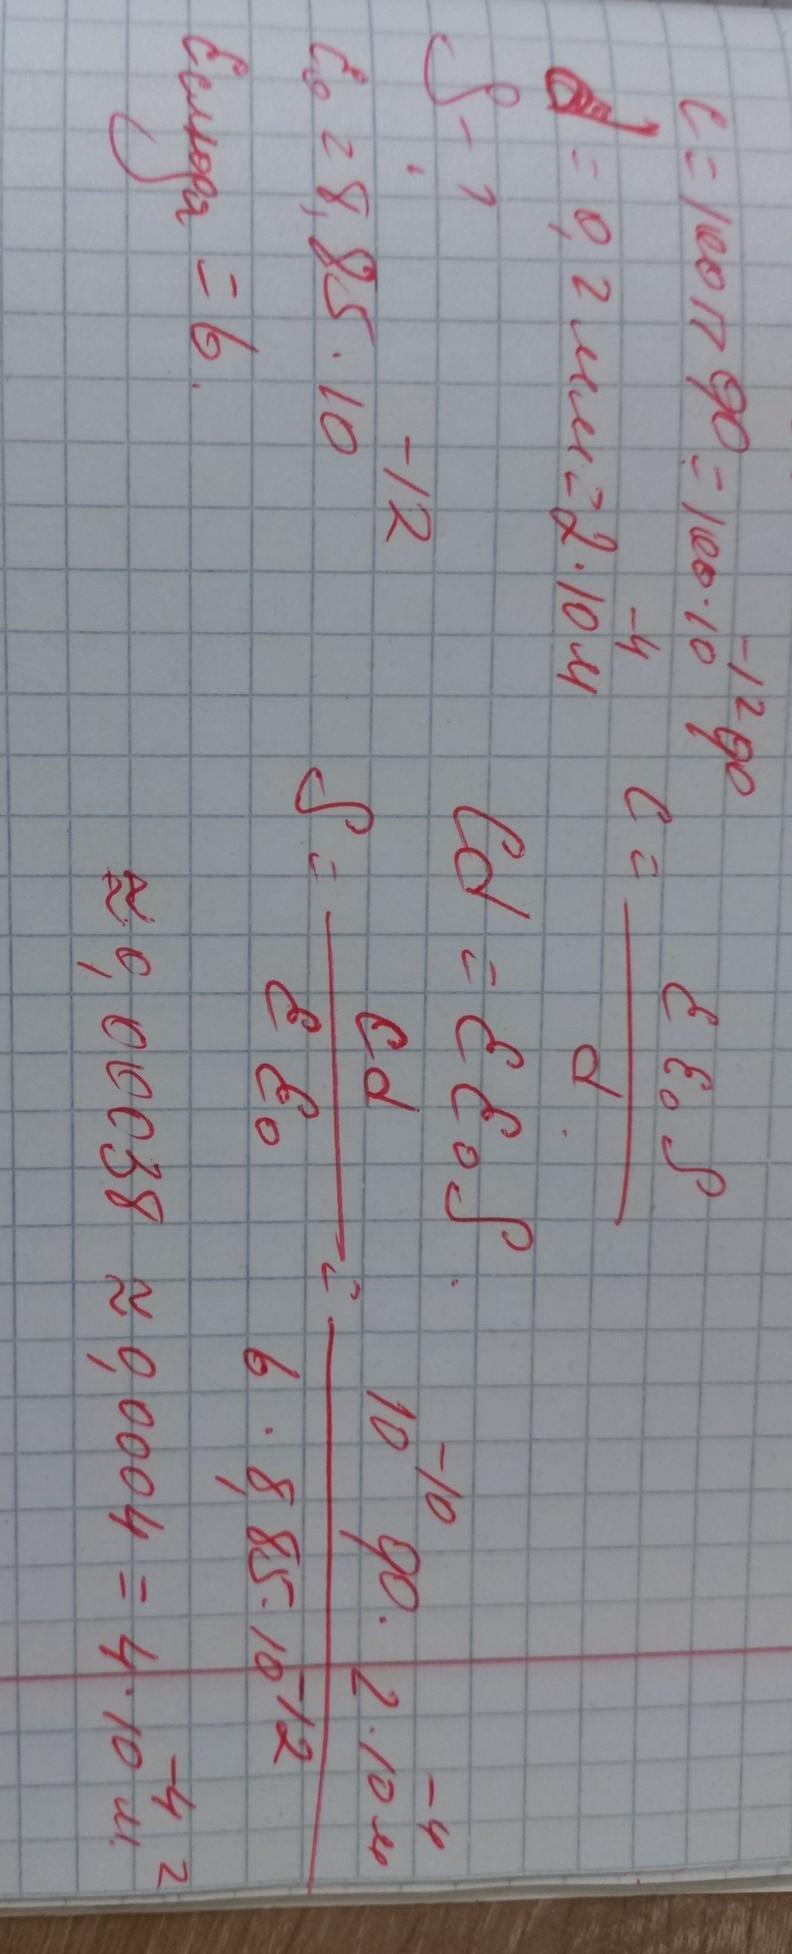 C = 100 пФ = 100·10⁻¹² Ф
d = 0,2 мм = 2·10⁻⁴ м
S - ?
ε₀ = 8,85·10⁻¹²
εслюда = 6.
C = εε₀S / d.
Cd = εε₀S.
S = Cd / εε₀ = 10⁻¹⁰ Ф·2·10⁻⁴ м / 6·8,85·10⁻¹²
≈ 0,00038 ≈ 0,0004 = 4·10⁻⁴ м²